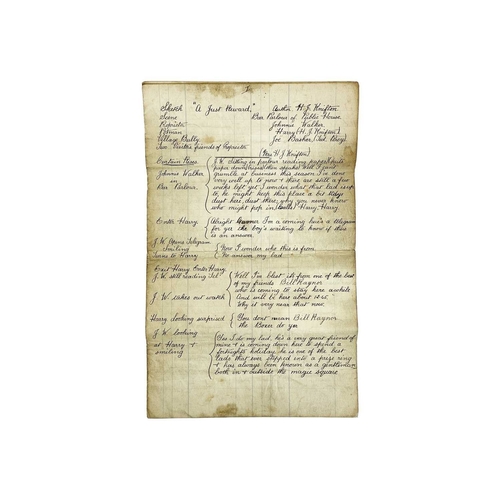 Sketch "A Just Reward," Author H.J. Knifton
Scene Bar Parlour of Public House
Proprietor Johnnie Walker
Potman Harry (H.J. Knifton)
Village Bully Joe Basher (Ted. Boy)
Two Visitors friends of Proprietor
(Mrs H.J. Knifton)
Curtain Rises J.W. sitting in parlour reading paper puts
paper down Well I can't
Johnnie Walker grumble at business this season I'm done
in very well up to now & there are still a few
Bar Parlour weeks left yet I wonder what that lad is up
to, he might keep this place a bit tidy
dust here, dust there, why you never know
who might pop in (calls) Harry, Harry.
Enter Harry Alright I'm a coming here's a telegram
for yer the boy's waiting to know if there
is an answer.
J.W. Opens Telegram
Smiling Now I wonder who this is from
Turns to Harry No answer my lad
Exit Harry Enter Harry
J.W. still reading Tel Well I'm blest it's from one of the best
of my friends Bill Haynor
who is coming to stay here awhile
J.W. takes out watch And will be here about 12.45.
Why it's very near that now.
Harry looking surprised You don't mean Bill Haynor
the Boxer do yer
J.W. looking Yes I do my lad, he's a very great friend of
at Harry & mine & is coming down here to spend a
smiling fortnights holiday, he is one of the best
lads that ever stepped into a prize ring
& has always been known as a gentleman
both in & outside the magic square